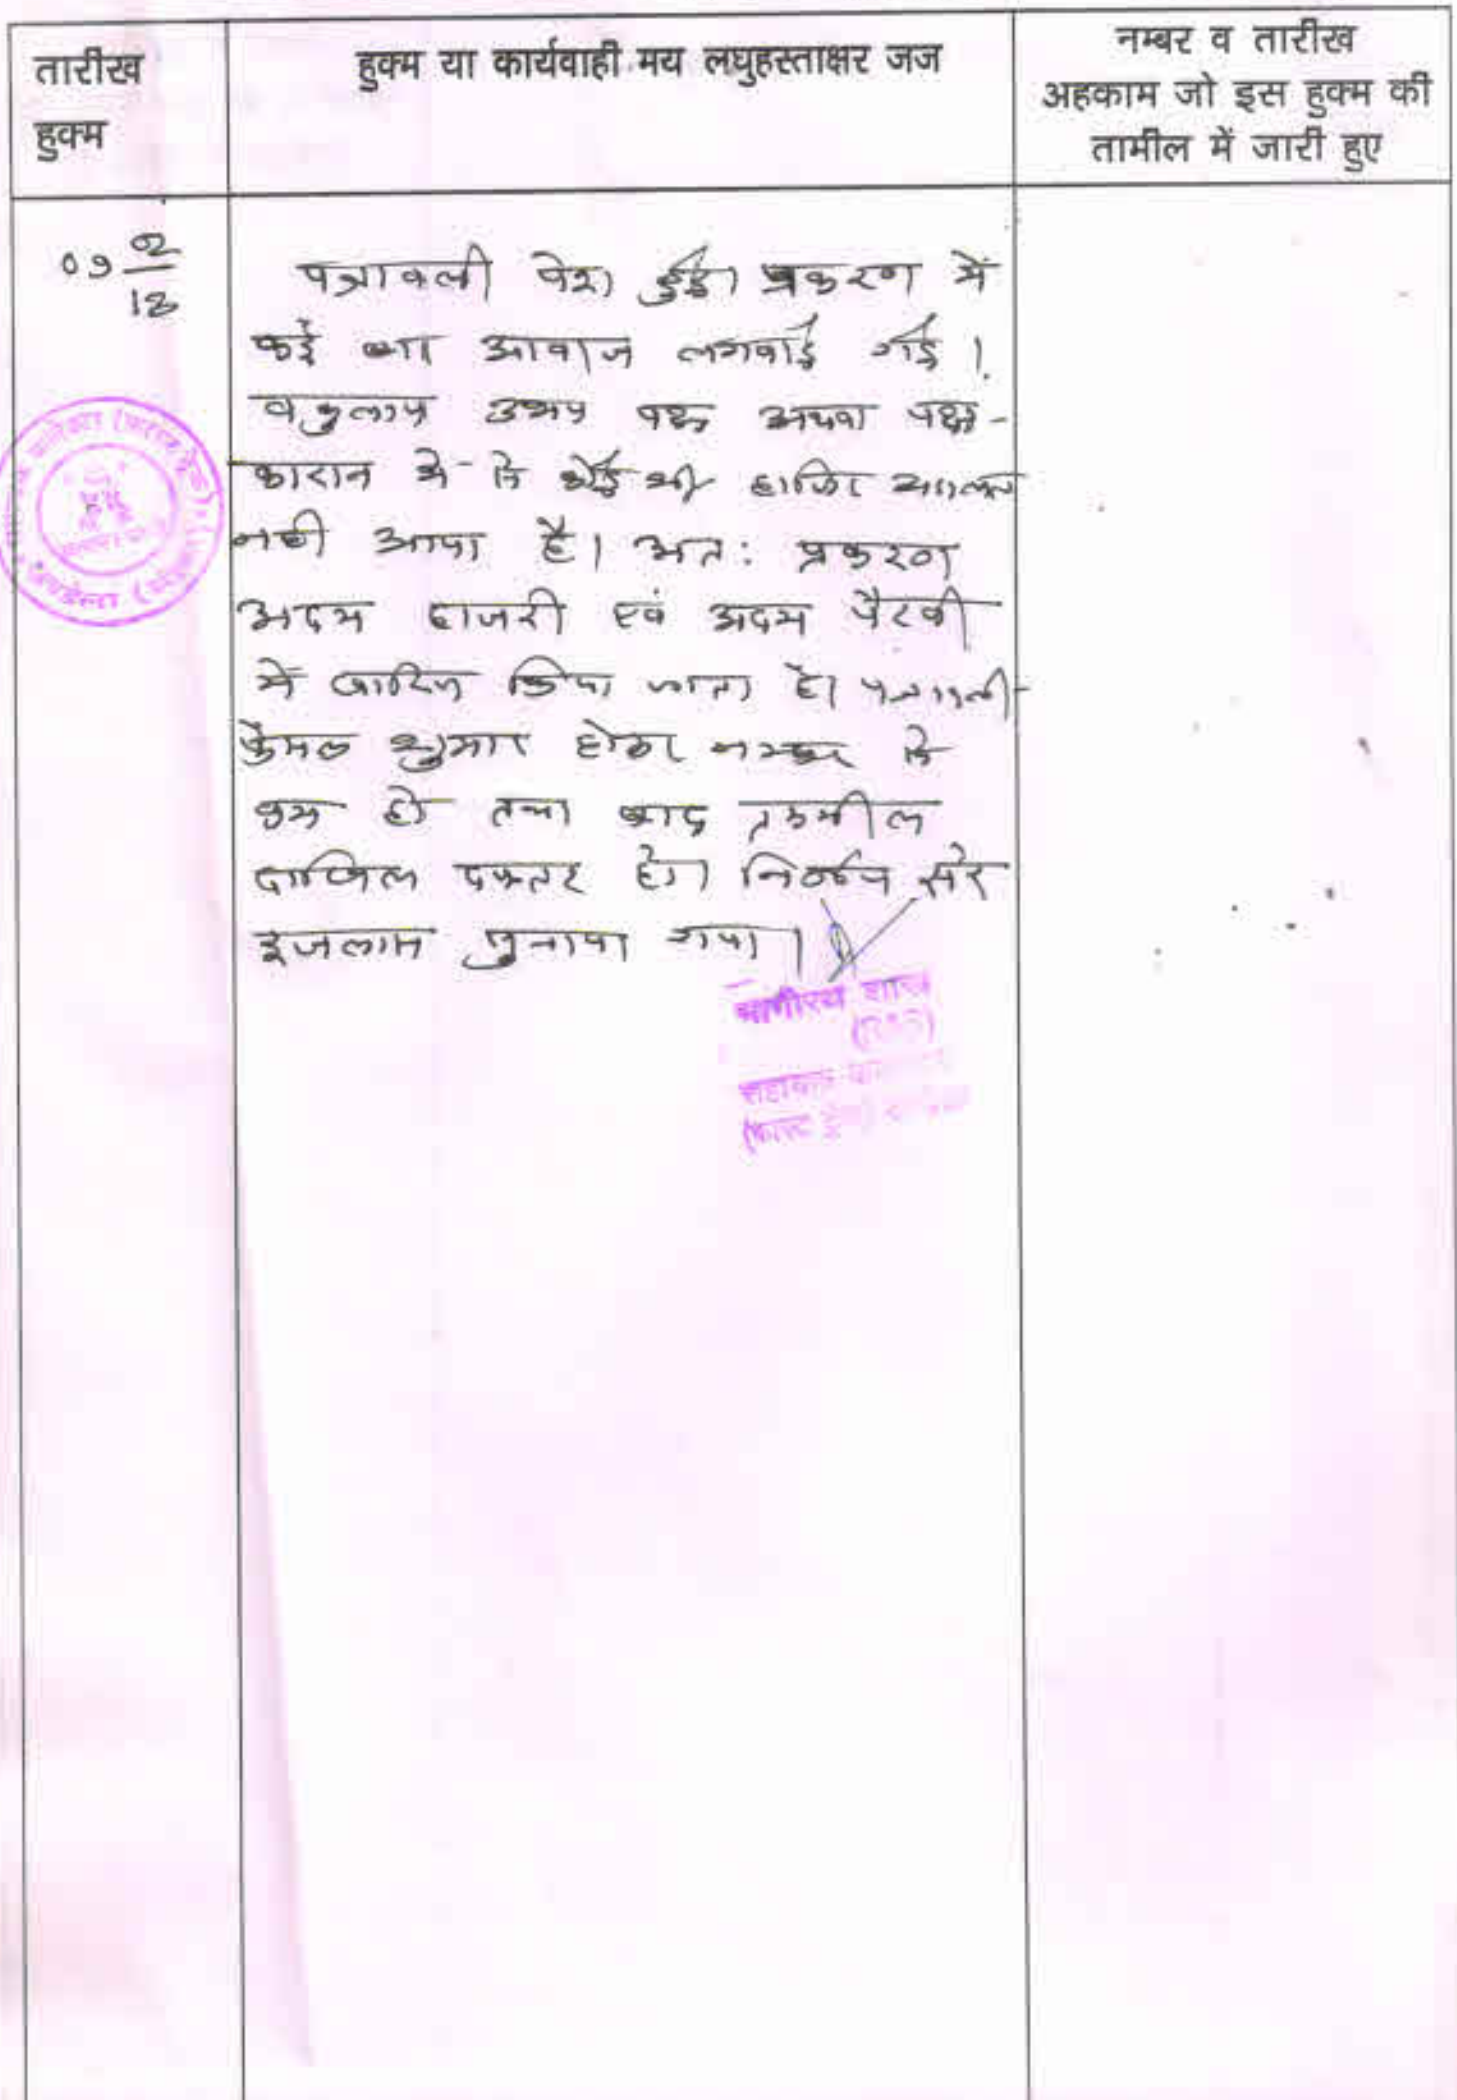 तारीख
हुक्म
हुक्म या कार्यवाही मय लघुहस्ताक्षर जज
नम्बर व तारीख
अहकाम जो इस हुक्म की
तामील में जारी हुए
09 2/18
पत्रावली पेश हुई। प्रकरण में
कई बार आवाज लगवाई गई।
वकुलाय उभय पक्ष अथवा पक्ष-
कारान में से कोई भी हाजिर अदालत
नही आया है। अतः प्रकरण
अदम हाजरी एवं अदम पैरवी
में खारिज किया जाता है। पत्रावली
फैसल शुमार होकर नम्बर से
कम हो तथा बाद तकमील
दाखिल दफ्तर हो। निर्णय सरे
इजलास सुनाया गया।
भागीरथ शाख
(RAS)
सहायक
(फास्ट ट्रेक)